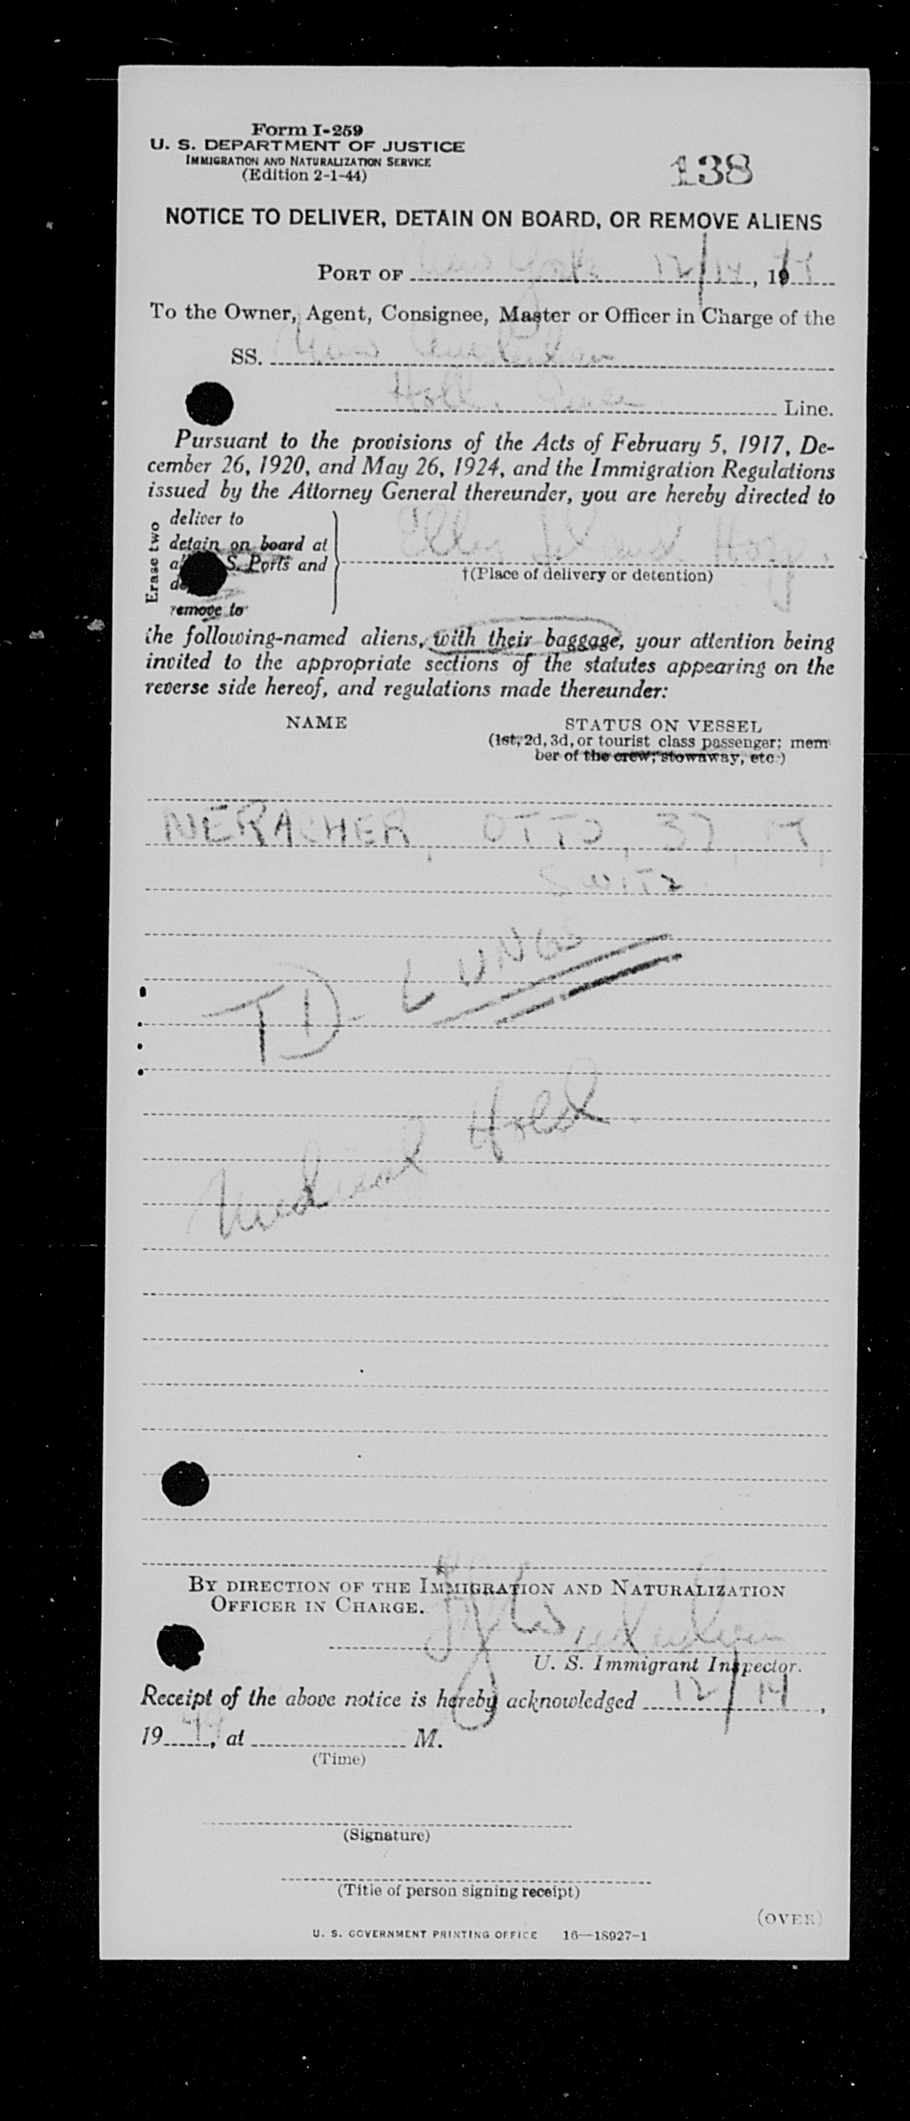 Form I-259
U. S. DEPARTMENT OF JUSTICE
IMMIGRATION AND NATURALIZATION SERVICE
(Edition 2-1-44)
138
NOTICE TO DELIVER, DETAIN ON BOARD, OR REMOVE ALIENS
PORT OF New York 12/14, 1947
To the Owner, Agent, Consignee, Master or Officer in Charge of the
SS.
Holl. Amer Line.
Pursuant to the provisions of the Acts of February 5, 1917, De-
cember 26, 1920, and May 26, 1924, and the Immigration Regulations
issued by the Attorney General thereunder, you are hereby directed to
Erase two
deliver to
detain on board at
S. Ports and
remove to
Ellis Island Hosp.
†(Place of delivery or detention)
the following-named aliens, with their baggage, your attention being
invited to the appropriate sections of the statutes appearing on the
reverse side hereof, and regulations made thereunder:
NAME
STATUS ON VESSEL
(1st, 2d, 3d, or tourist class passenger; mem-
ber of the crew, stowaway, etc.)
NERACHER, OTTO, 37,
SWITZ
TD - LUNGS
Medical Hold
BY DIRECTION OF THE IMMIGRATION AND NATURALIZATION
OFFICER IN CHARGE.
U. S. Immigrant Inspector.
Receipt of the above notice is hereby acknowledged 12/14,
1947, at M.
(Time)
(Signature)
(Title of person signing receipt)
(OVER)
U. S. GOVERNMENT PRINTING OFFICE 16—18927-1